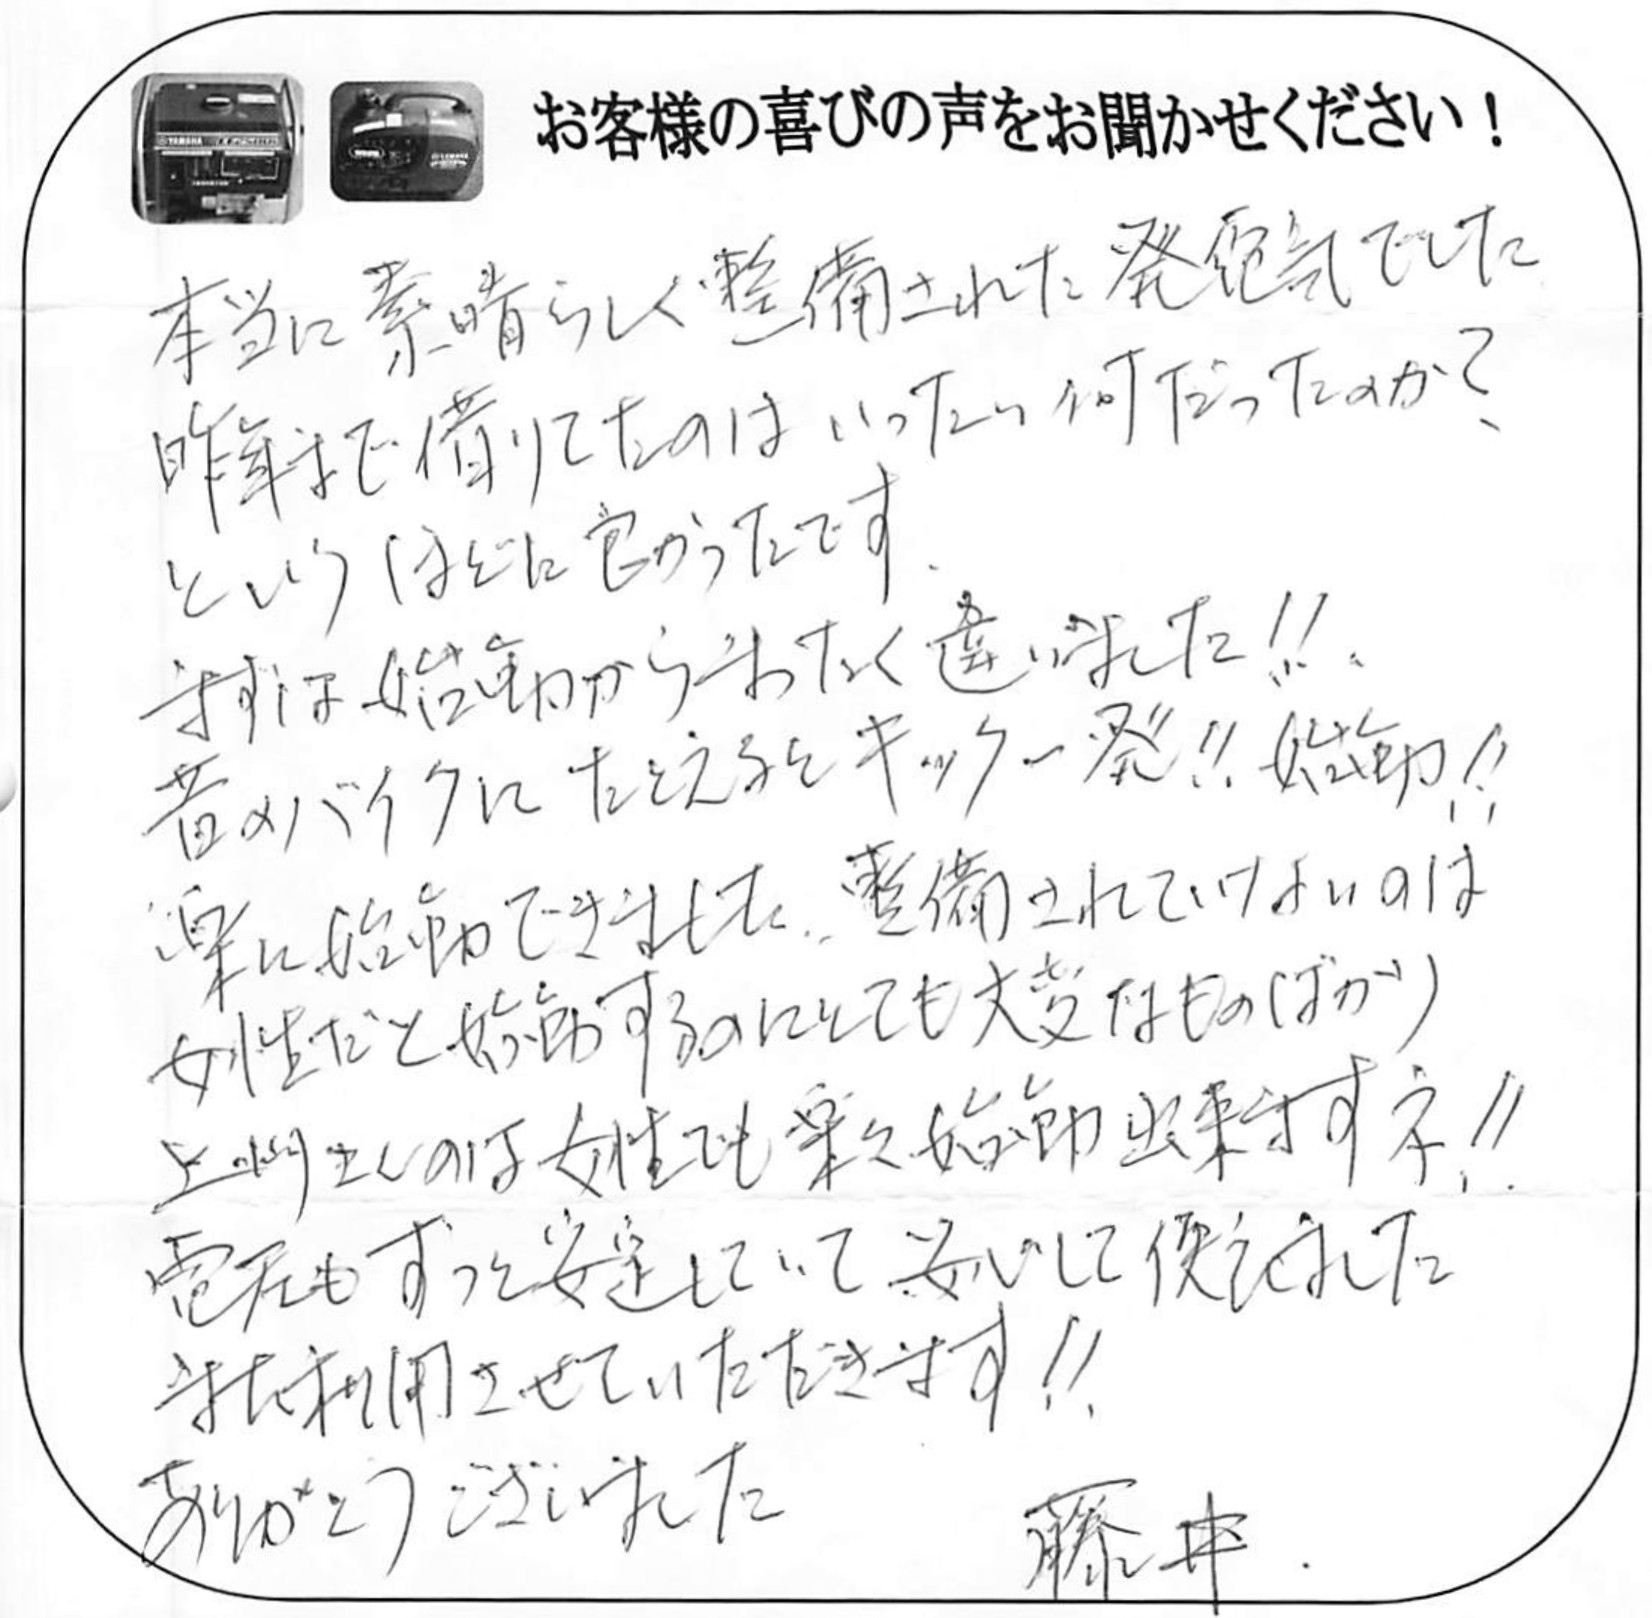 お客様の喜びの声をお聞かせください！
YAMAHA
本当に素晴らしく整備された発電気でした
昨年まで借りてたのはいったい何だったのか？
というほどに良かったです.
まずは始動からまったく違いました!!.
昔のバイクにたとえるとキック一発!! 始動!!
楽に始動できました. 整備されていないのは
女性だと始動するのにとても大変なものばかり
上崎さんのは女性でも楽々始動出来ますネ!!
電圧もずっと安定していて安心して使えました
また利用させていただきます!!
ありがとうございました
藤井.